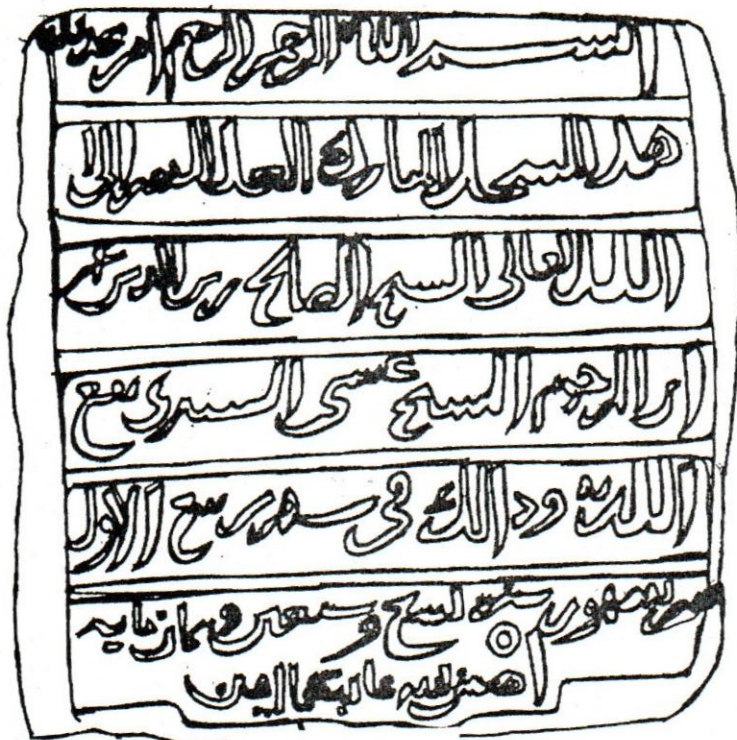 بسم الله الرحمن الرحيم امر
هذا المبارك العبد الفقير الى
الله تعالى الشيخ الصالح الدين
ابن المرحوم الشيخ عيسى نفع
الله به وذالك في شهر ربيع الاول
شهور سنة تسع وسبعين وثمانمايه
احسن الله عاقبتها امين